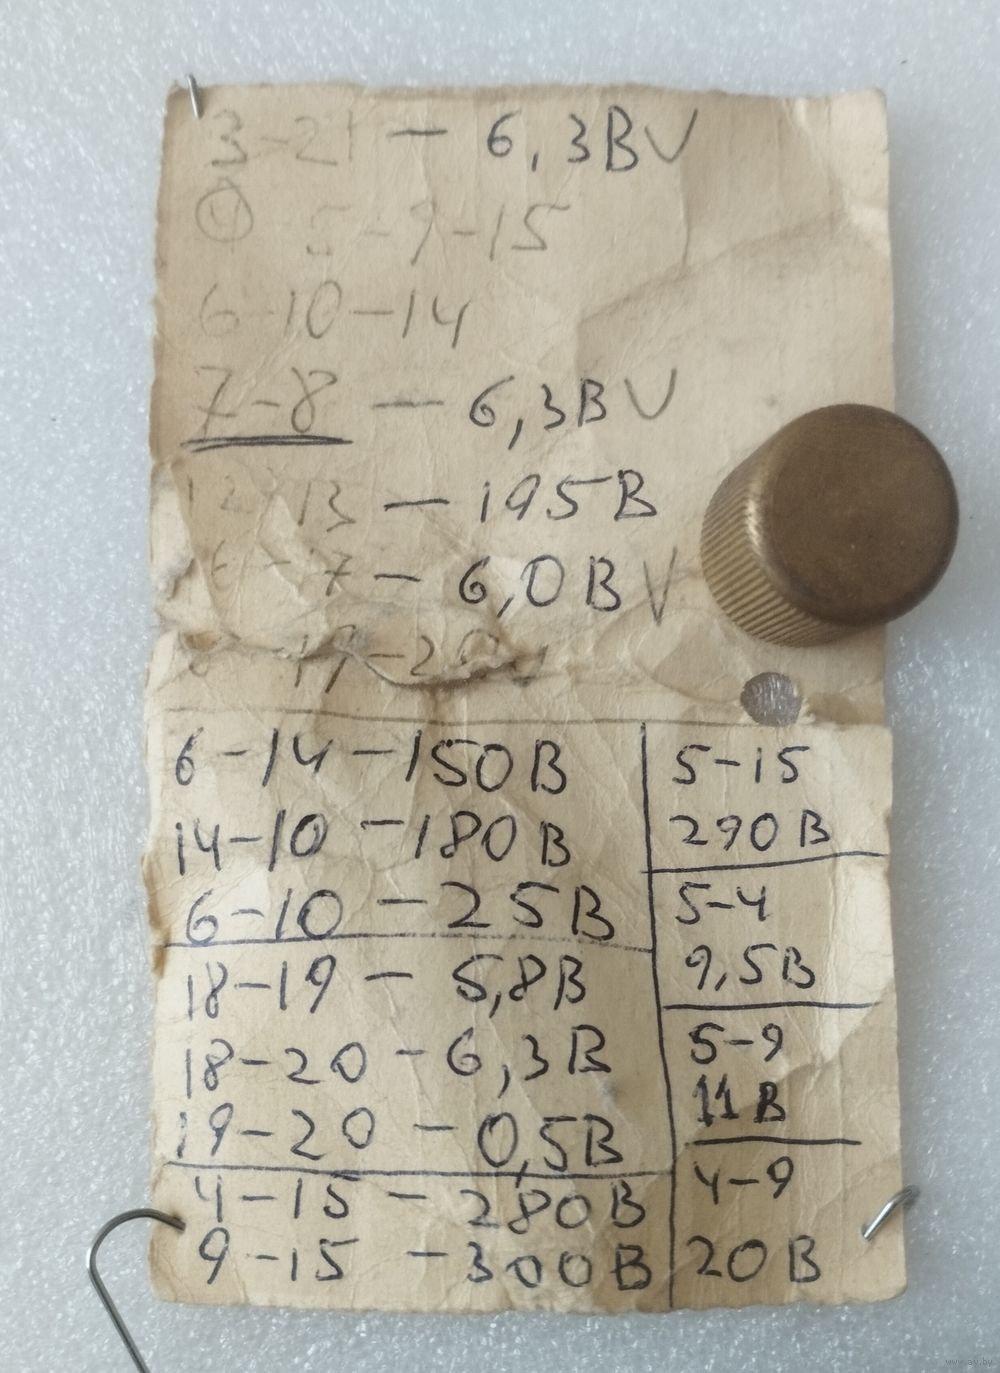 3-21 — 6,3В V
④ 5-9-15
6-10-14
7-8 — 6,3В V
12-13 — 195В
16-17 — 6,0В V
18-19-20
6-14-150В
14-10-180В
6-10-25В
18-19-5,8В
18-20-6,3В
19-20-0,5В
4-15-280В
9-15-300В
5-15
290В
5-4
9,5В
5-9
11В
4-9
20В
www.ay.by